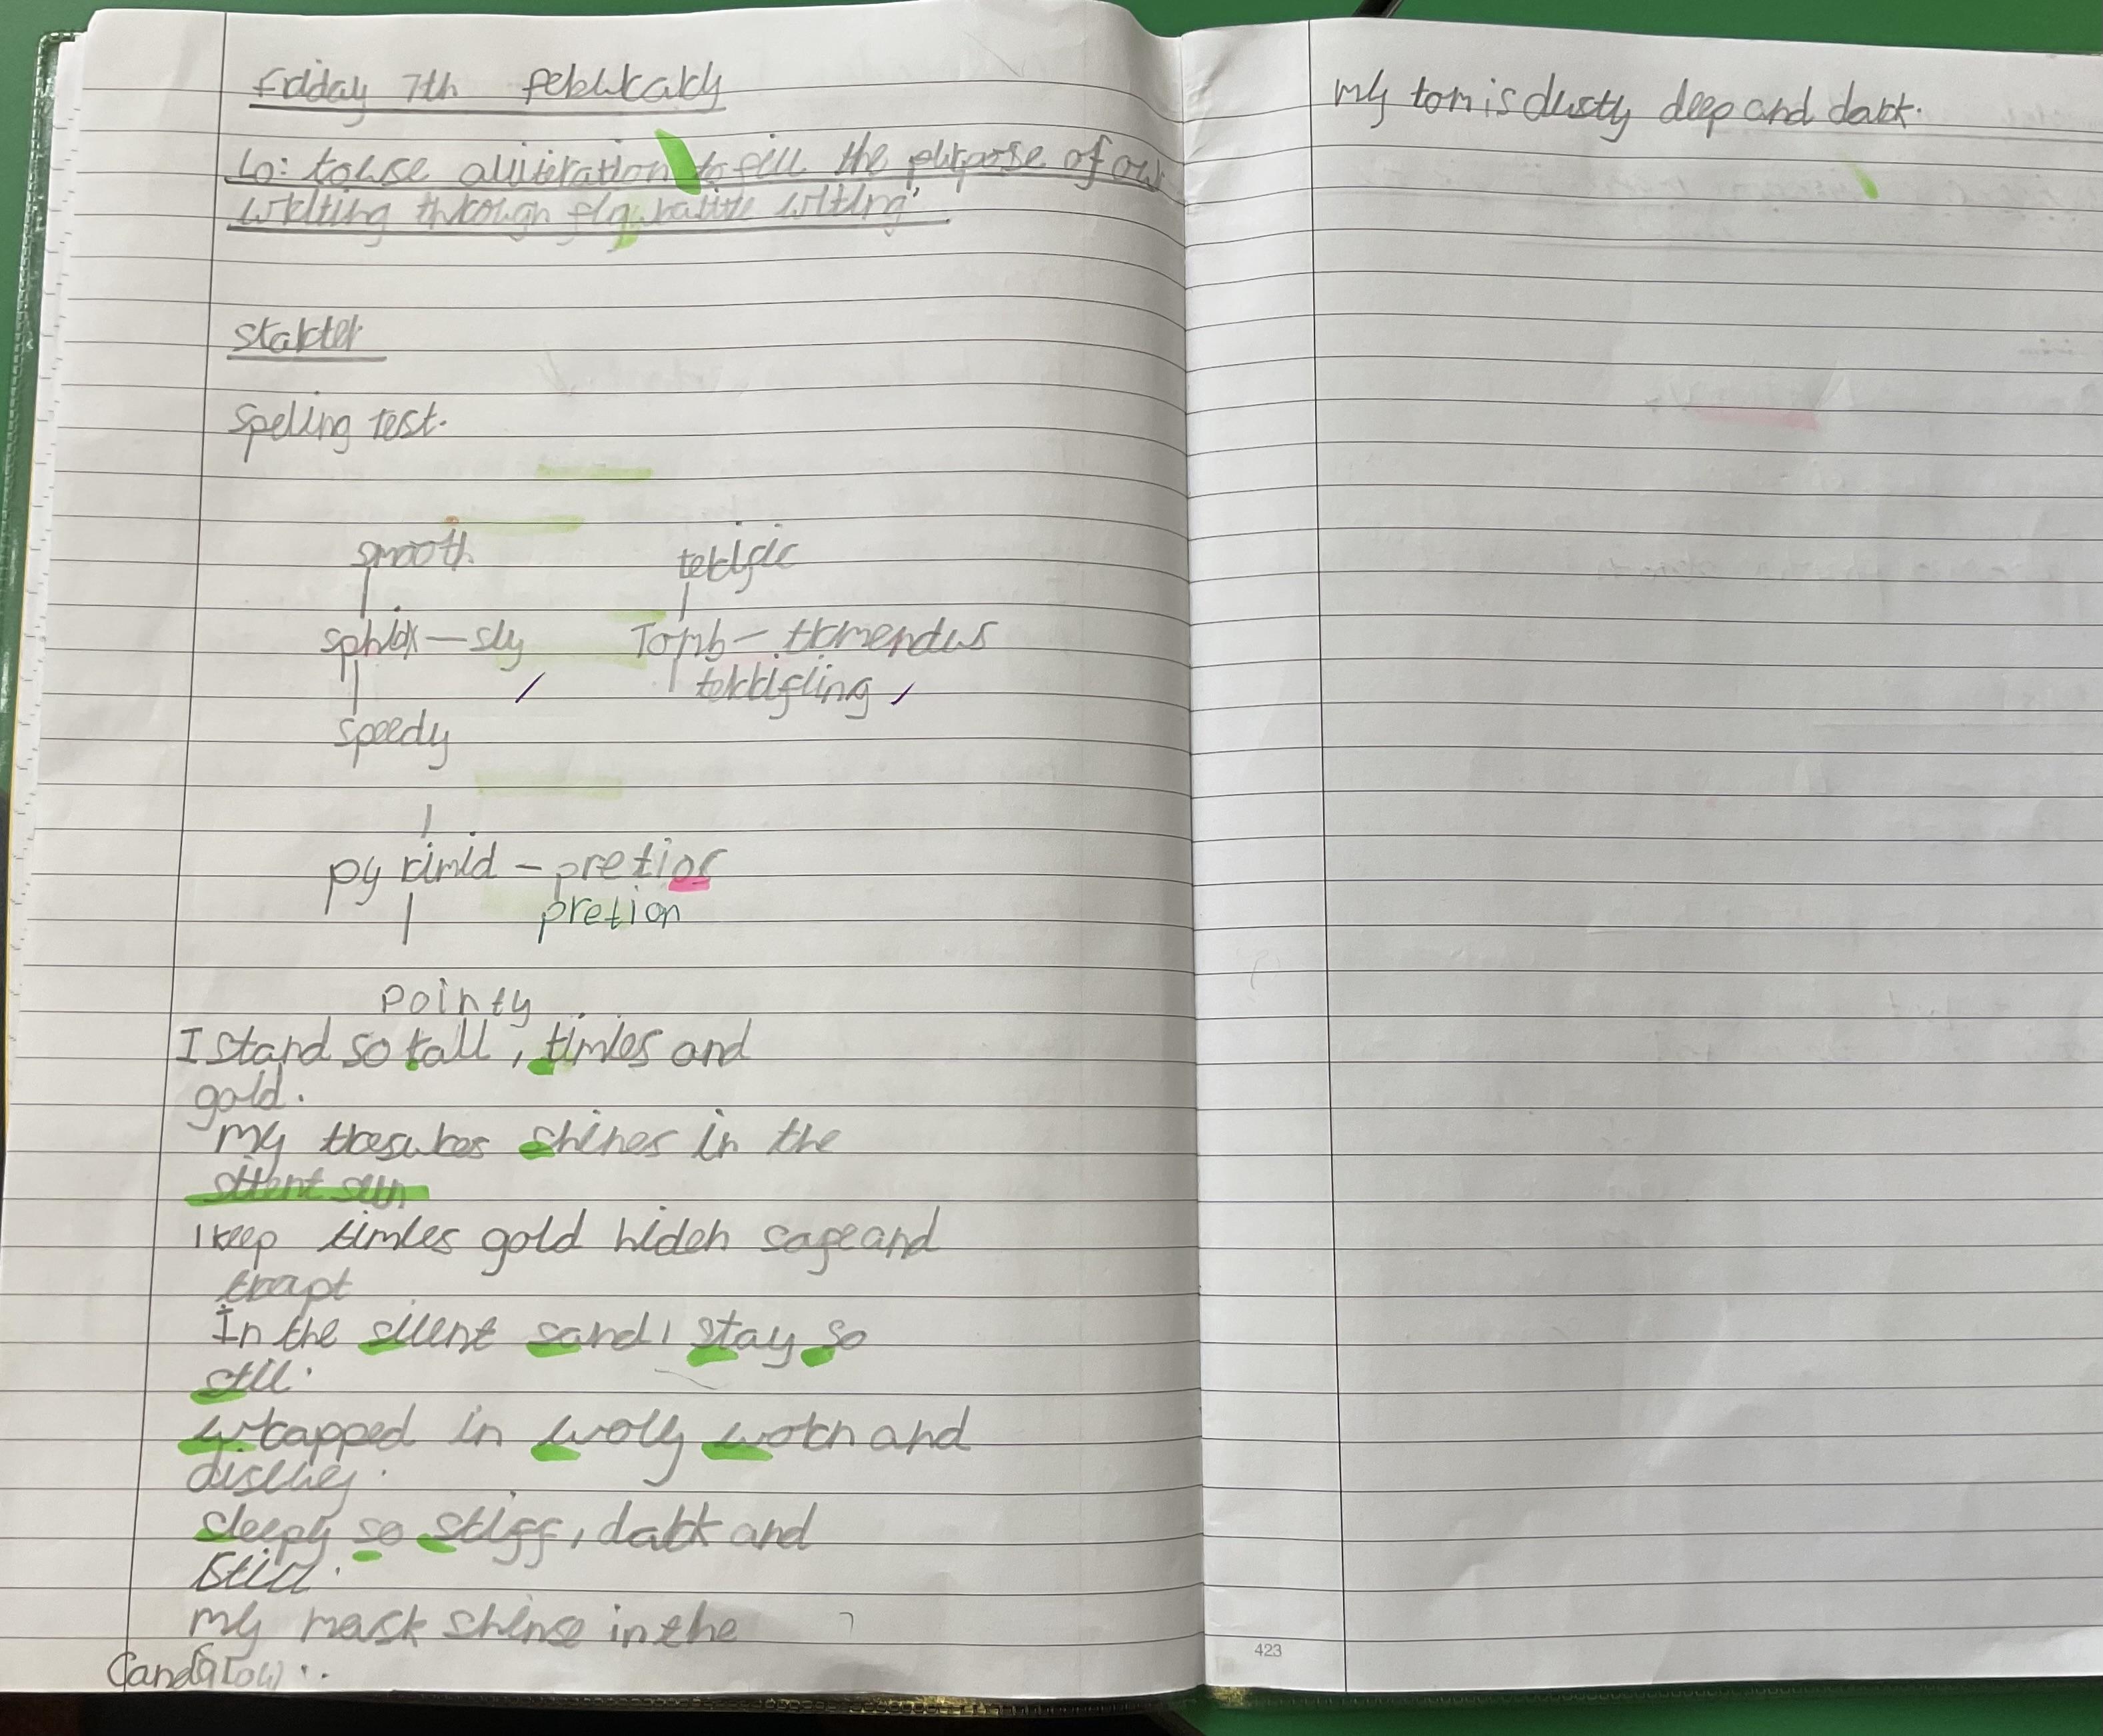 friday 7th february
Lo: to use alliteration to fill the purpose of our
writing through figurative writing
starter
speling test.
smooth terific
sphinx — sly Tomb — tremendus
terrifling
speedy
py rimid – pretior
pretion
pointy
I stand so tall, timles and
gold.
my tresures shines in the
silent sun
I keep timles gold hiden safe and
trapt
In the silent sand i stay so
still.
wrapped in wolly worn and
sleepy so stiff, dark and
still.
my mask shinse in the
Cand glow.
my tom is dusty deep and dark.
423